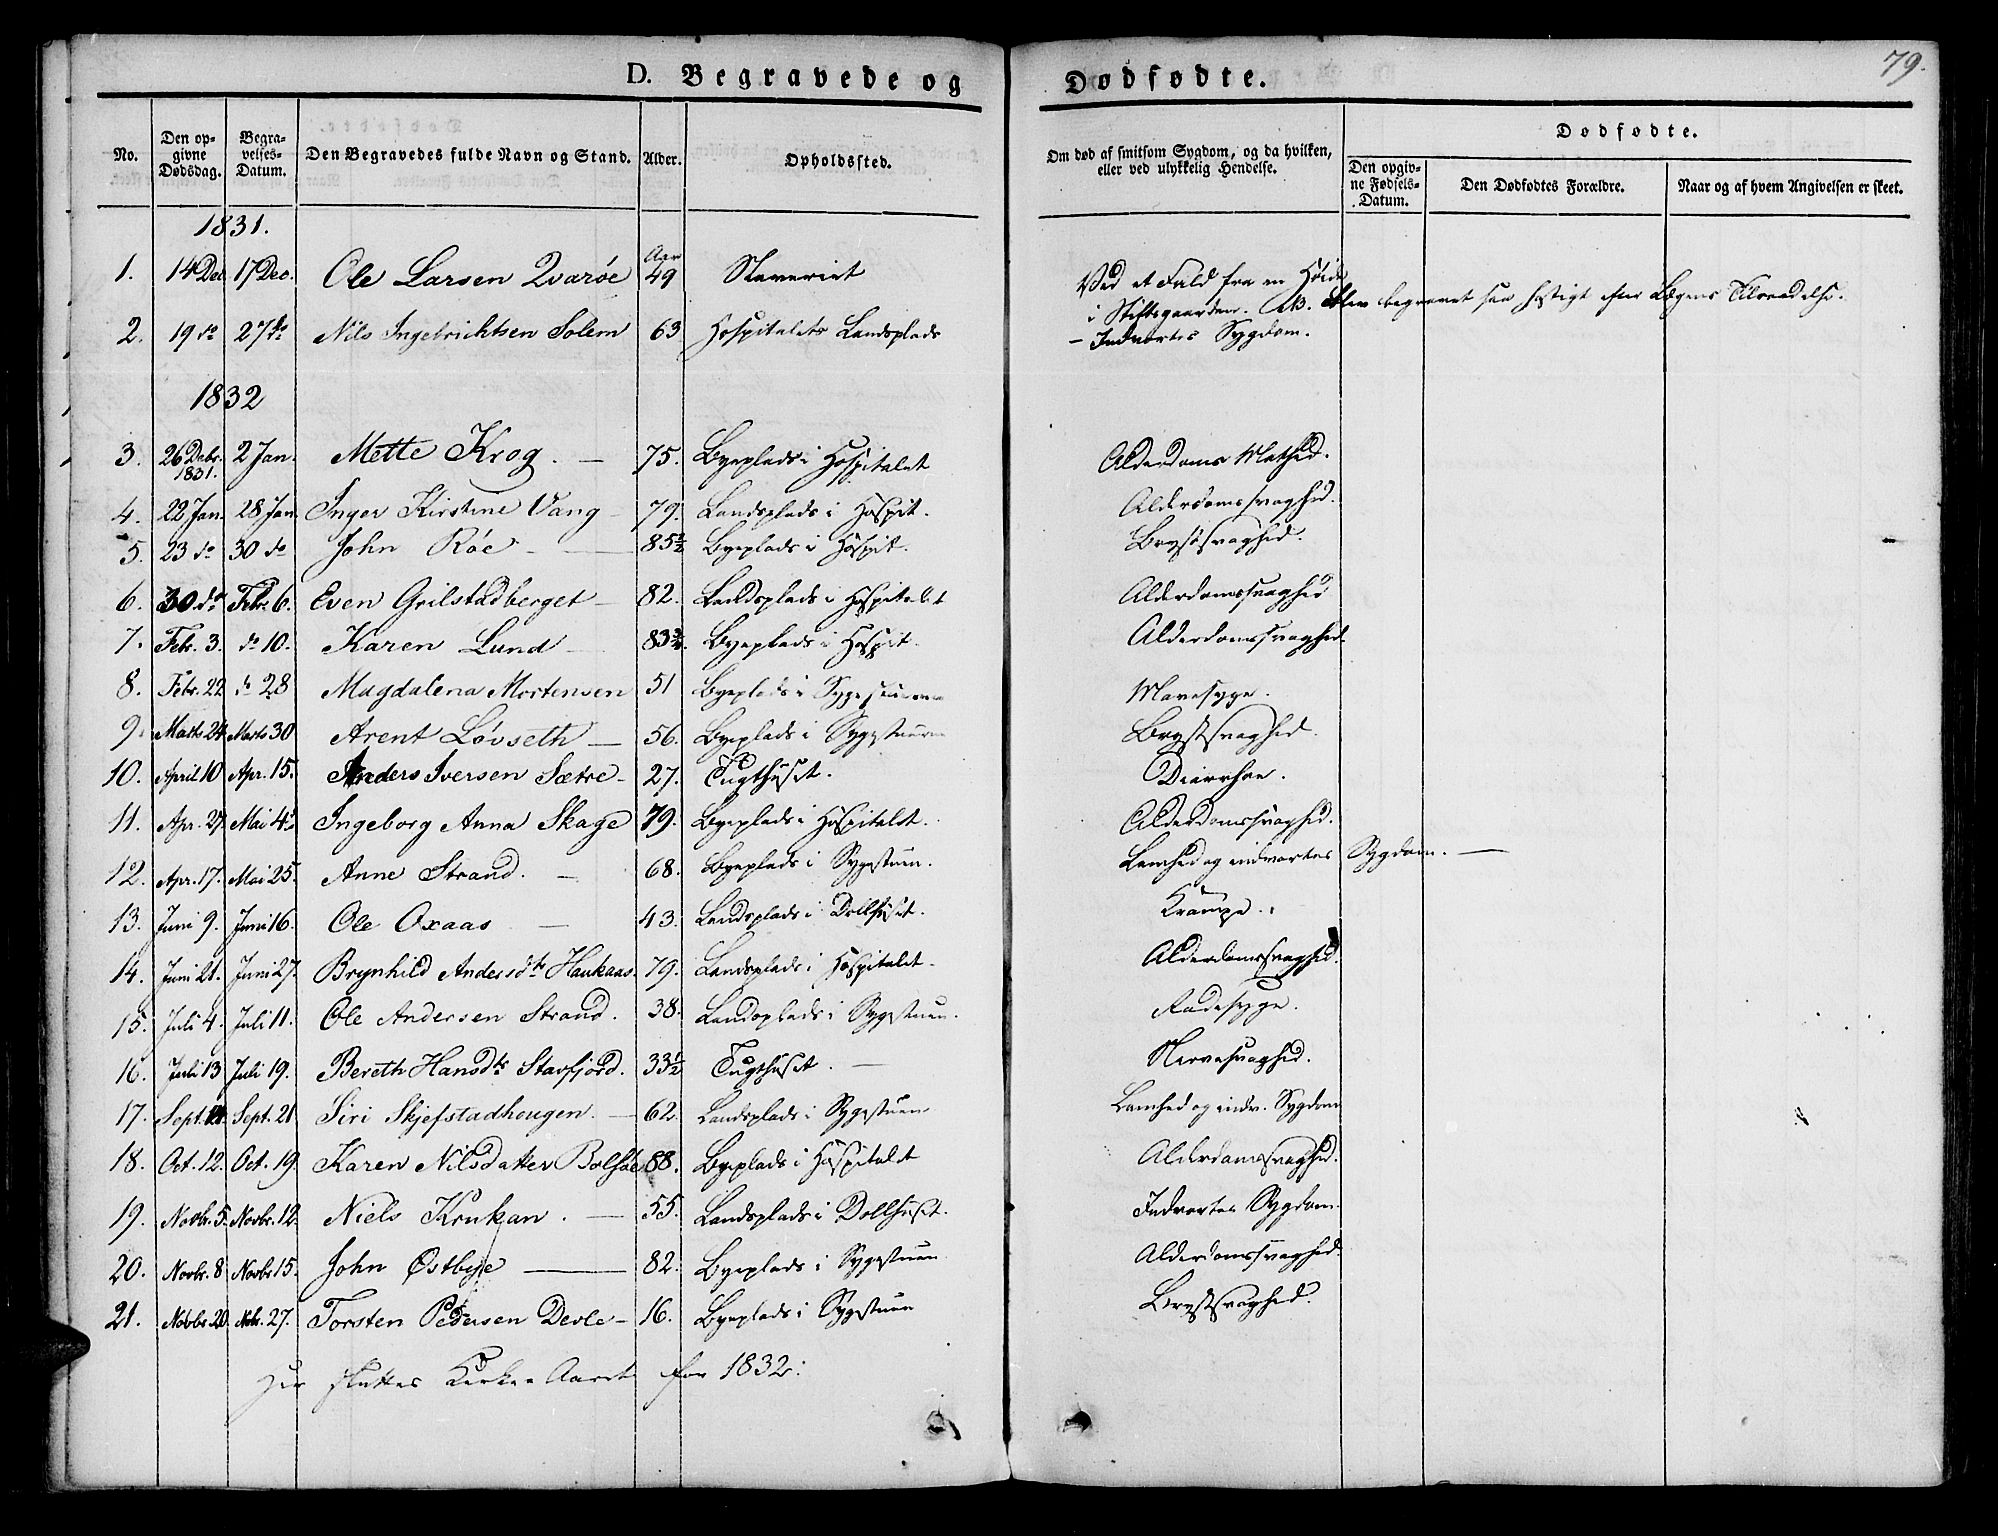 D. Begravede og Dødfødte.
79.
No. Den opgivne Dødsdag. Begravelses-Datum. Den Begravedes fulde Navn og Stand. Alder. Opholdssted. Om død af smitsom Sygdom, og da hvilken, eller ved ulykkelig Hendelse. Dødfødte. Den opgivne Fødsels-Datum. Den Dødfødtes Forældre. Naar og af hvem Angivelsen er skeet.
1831.
1. 14 Dec 17 Dec. Ole Larsen Qvarøe Aar 49 Slaveriet Ved et Fald fra en Høide i Stiftsgaarden. NB. Blev begravet saa hastigt efter Lægens Tilraadelse.
2. 19 do 27 do Nils Ingebrichtsen Solem 63 Hospitalets Landsplads - Indvortes Sygdom.
1832
3. 26 Debr. 1831. 2 Jan. Mette Krog. — 75. Byeplads i Hospitalet Alderdoms Mathed.
4. 22 Jan. 28 Jan. Inger Kirstine Vang - 79. Landsplads i Hospit. Alderdomssvaghed.
5. 23 do 30 do John Røe - — 85½ Byeplads i Hospit. Brystsvaghed.
6. 30 do Febr 6. Even Grilstadberget - 82. Landsplads i Hospitalet Alderdomssvaghed
7. Feb. 3. do 10. Karen Lund — 83¾. Byeplads i Hospit. Alderdomssvaghed.
8. Febr. 22 do 28 Magdalena Mortensen 51 Byeplads i Sygestuerne Mavesyge.
9. Marts 24 Marts 30 Arent Løvseth — 56. Byeplads i Sygestuen Brystsvaghed.
10. April 10 Apr. 15. Anders Iversen Sætre - 27. Tugthuset. Diarrhae.
11. Apr. 27 Mai 4de Ingeborg Anna Skage 79. Byeplads i Hospitalet. Alderdomssvaghed.
12. Apr. 17. Mai 25. Anne Strand. — 68. Byeplads i Sygestuen. Lamhed og indvortes Sygdom. —
13. Juni 9. Juni 16. Ole Oxaas — 43. Landsplads i Dollhuset. Krampe.
14. Juni 21. Juni 27. Brynhild Andersdtr Haukaas. 79. Landsplads i Hospitalet. Alderdomssvaghed.
15. Juli 4. Juli 11. Ole Andersen Strand. 38. Landsplads i Sygestuen. Radesyge.
16. Juli 13 Juli 19. Bereth Hansdtr Stavfjord. 33½ Tugthuset. — Nervesvaghed.
17. Sept. Sept. 21 Siri Skjefstadhougen. — 62. Landsplads i Sygestuen Lamhed og indv. Sygdom
18. Oct. 12. Oct. 19. Karen Nilsdatter Bolsøe 88. Byeplads i Hospitalet Alderdomssvaghed.
19. Novbr. 5. Novbr. 12. Niels Krukan. — 55. Landsplads i Dollhuset. Indvortes Sygdom.
20. Novbr. 8 Novbr 15. John Østbye — 82. Byeplads i Sygestuen Alderdomssvaghed.
21. Novbr 20. Nvb. 27. Torsten Pedersen Devle - 16. Byeplads i Sygestuen Brystsvaghed.
Her sluttes Kirke Aaret for 1832.